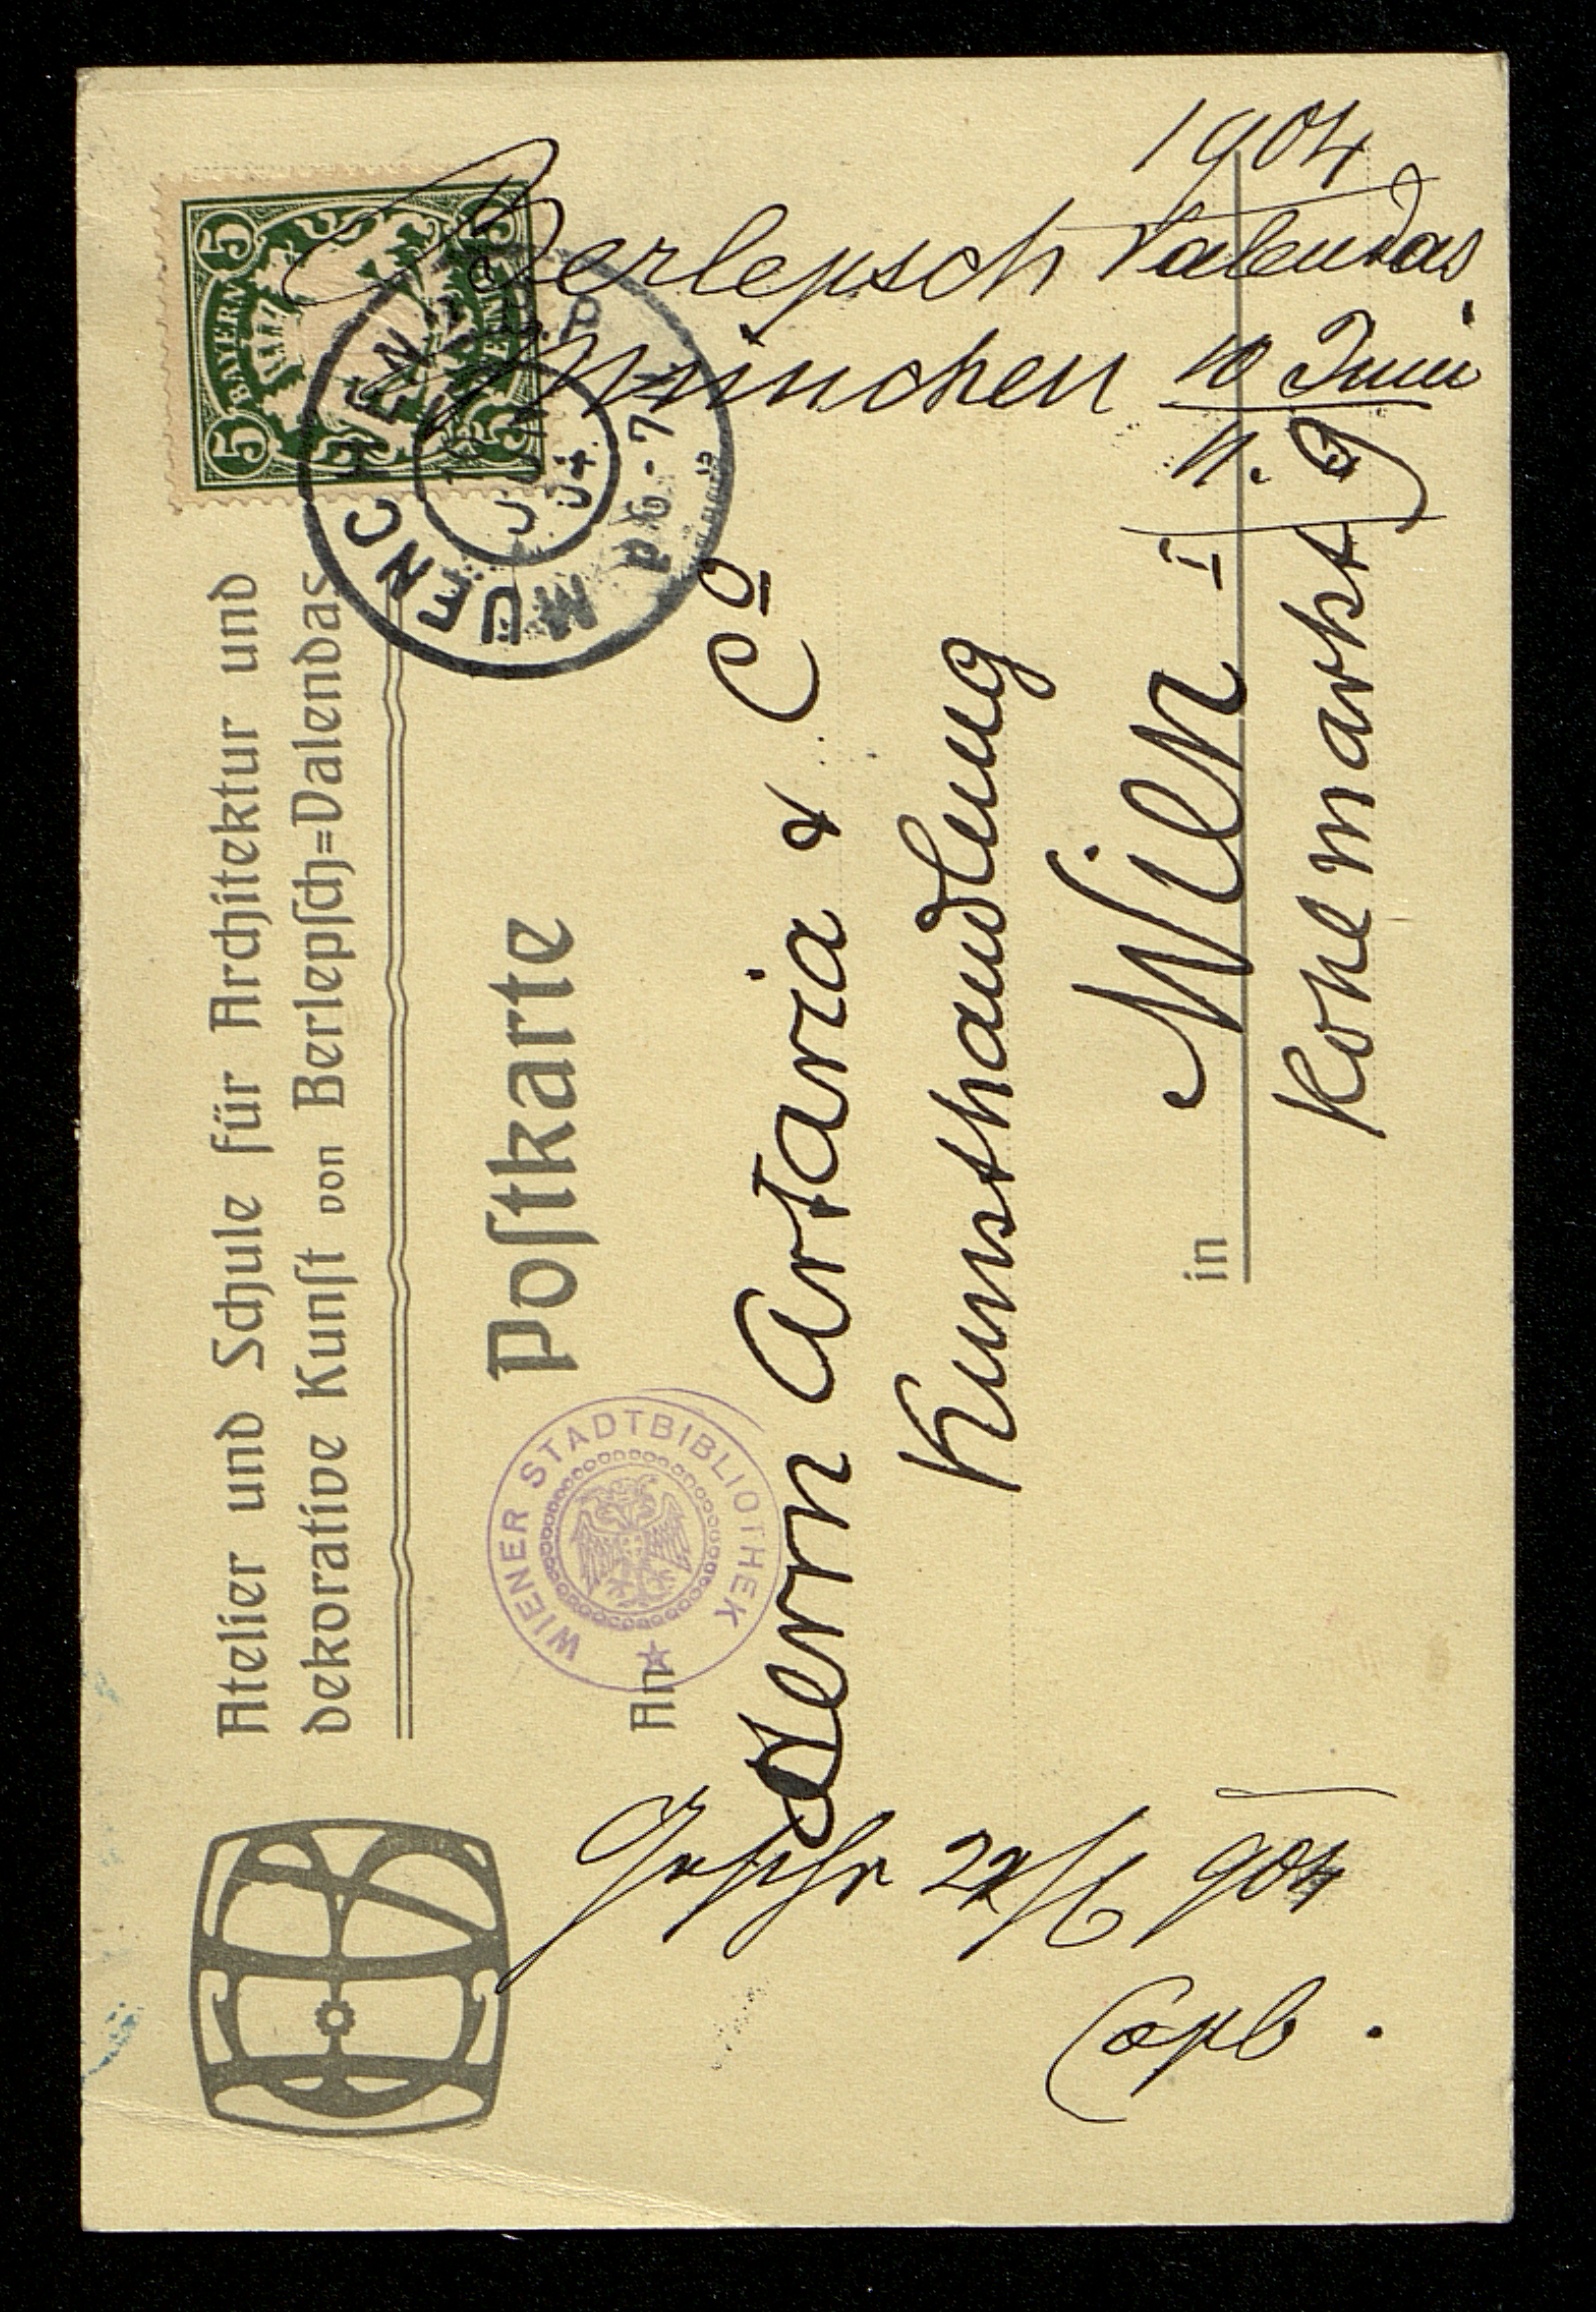 Atelier und Schule für Architektur und
dekorative Kunst von Berlepsch=Valendas
Postkarte
An
Herrn Artaria & Co
Kunsthandlung
in Wien I
Kohlmarkt 9
1904
Berlepsch Valendas
München 10 Juni
11.
22/6 904
Copb.
5 5
BAYERN
5 5
MUENCHEN
JUN
04
6-7
WIENER STADTBIBLIOTHEK